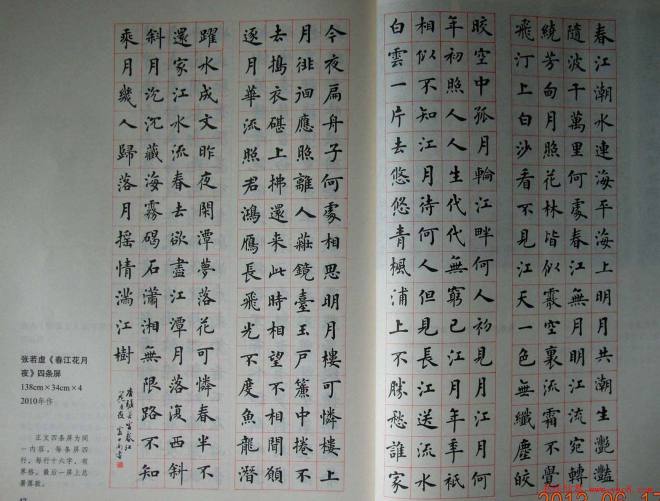 春江潮水連海平海上明月共潮生灩灩
隨波千萬里何處春江無月明江流宛轉
繞芳甸月照花林皆似霰空裏流霜不覺
飛汀上白沙看不見江天一色無纖塵皎
皎空中孤月輪江畔何人初見月江月何
年初照人人生代代無窮已江月年年祇
相似不知江月待何人但見長江送流水
白雲一片去悠悠青楓浦上不勝愁誰家
今夜扁舟子何處相思明月樓可憐樓上
月徘徊應照離人莊鏡臺玉戶簾中捲不
去搗衣碪上拂還來此時相望不相聞願
逐月華流照君鴻鴈長飛光不度魚龍潛
躍水成文昨夜閑潭夢落花可憐春半不
還家江水流春去欲盡江潭月落復西斜
斜月沉沉藏海霧碣石瀟湘無限路不知
乘月幾人歸落月搖情滿江樹
张若虚《春江花月
夜》四条屏
138cm×34cm×4
2010年作
正文四条屏为同
一内容，每条屏四
行，每行十六字，有
界格，最后一屏上总
署落款。